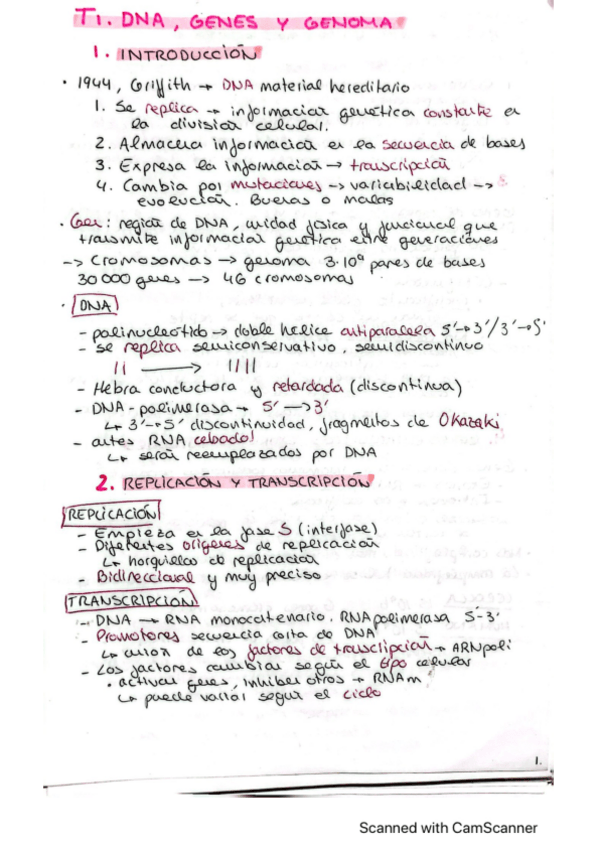 T1. DNA, GENES Y GENOMA
1. INTRODUCCIÓN
· 1944, Griffith → DNA material hereditario
1. Se replica → información genética constante en
la división celular.
2. Almacena información en la secuencia de bases
3. Expresa la información → transcripción
4. Cambia por mutaciones -> variabilidad ->
evolución. Buenas o malas
· Gen: región de DNA, unidad física y funcional que
transmite información genética entre generaciones
-> Cromosomas → genoma 3·10⁹ pares de bases
30 000 genes -> 46 cromosomas
· DNA
- polinucleótido → doble hélice antiparalela 5'→3'/3'→5'
- se replica semiconservativo, semidiscontinuo
- Hebra conductora y retardada (discontinua)
- DNA-polimerasa → 5' → 3'
↳ 3'→5' discontinuidad, fragmentos de Okazaki
- antes RNA cebador
↳ serán reemplazados por DNA
2. REPLICACIÓN Y TRANSCRIPCIÓN
REPLICACIÓN
- Empieza en la fase S (interfase)
- Diferentes orígenes de replicación
↳ horquillas de replicación
- Bidireccional y muy preciso
TRANSCRIPCIÓN
- DNA → RNA monocatenario. RNA polimerasa 5'-3'
- Promotores secuencia corta de DNA
↳ unión de los factores de transcripción → ARNpoli
- Los factores cambian según el tipo celular
· activan genes, inhiben otros → RNAm
↳ puede variar según el ciclo
1.
Scanned with CamScanner